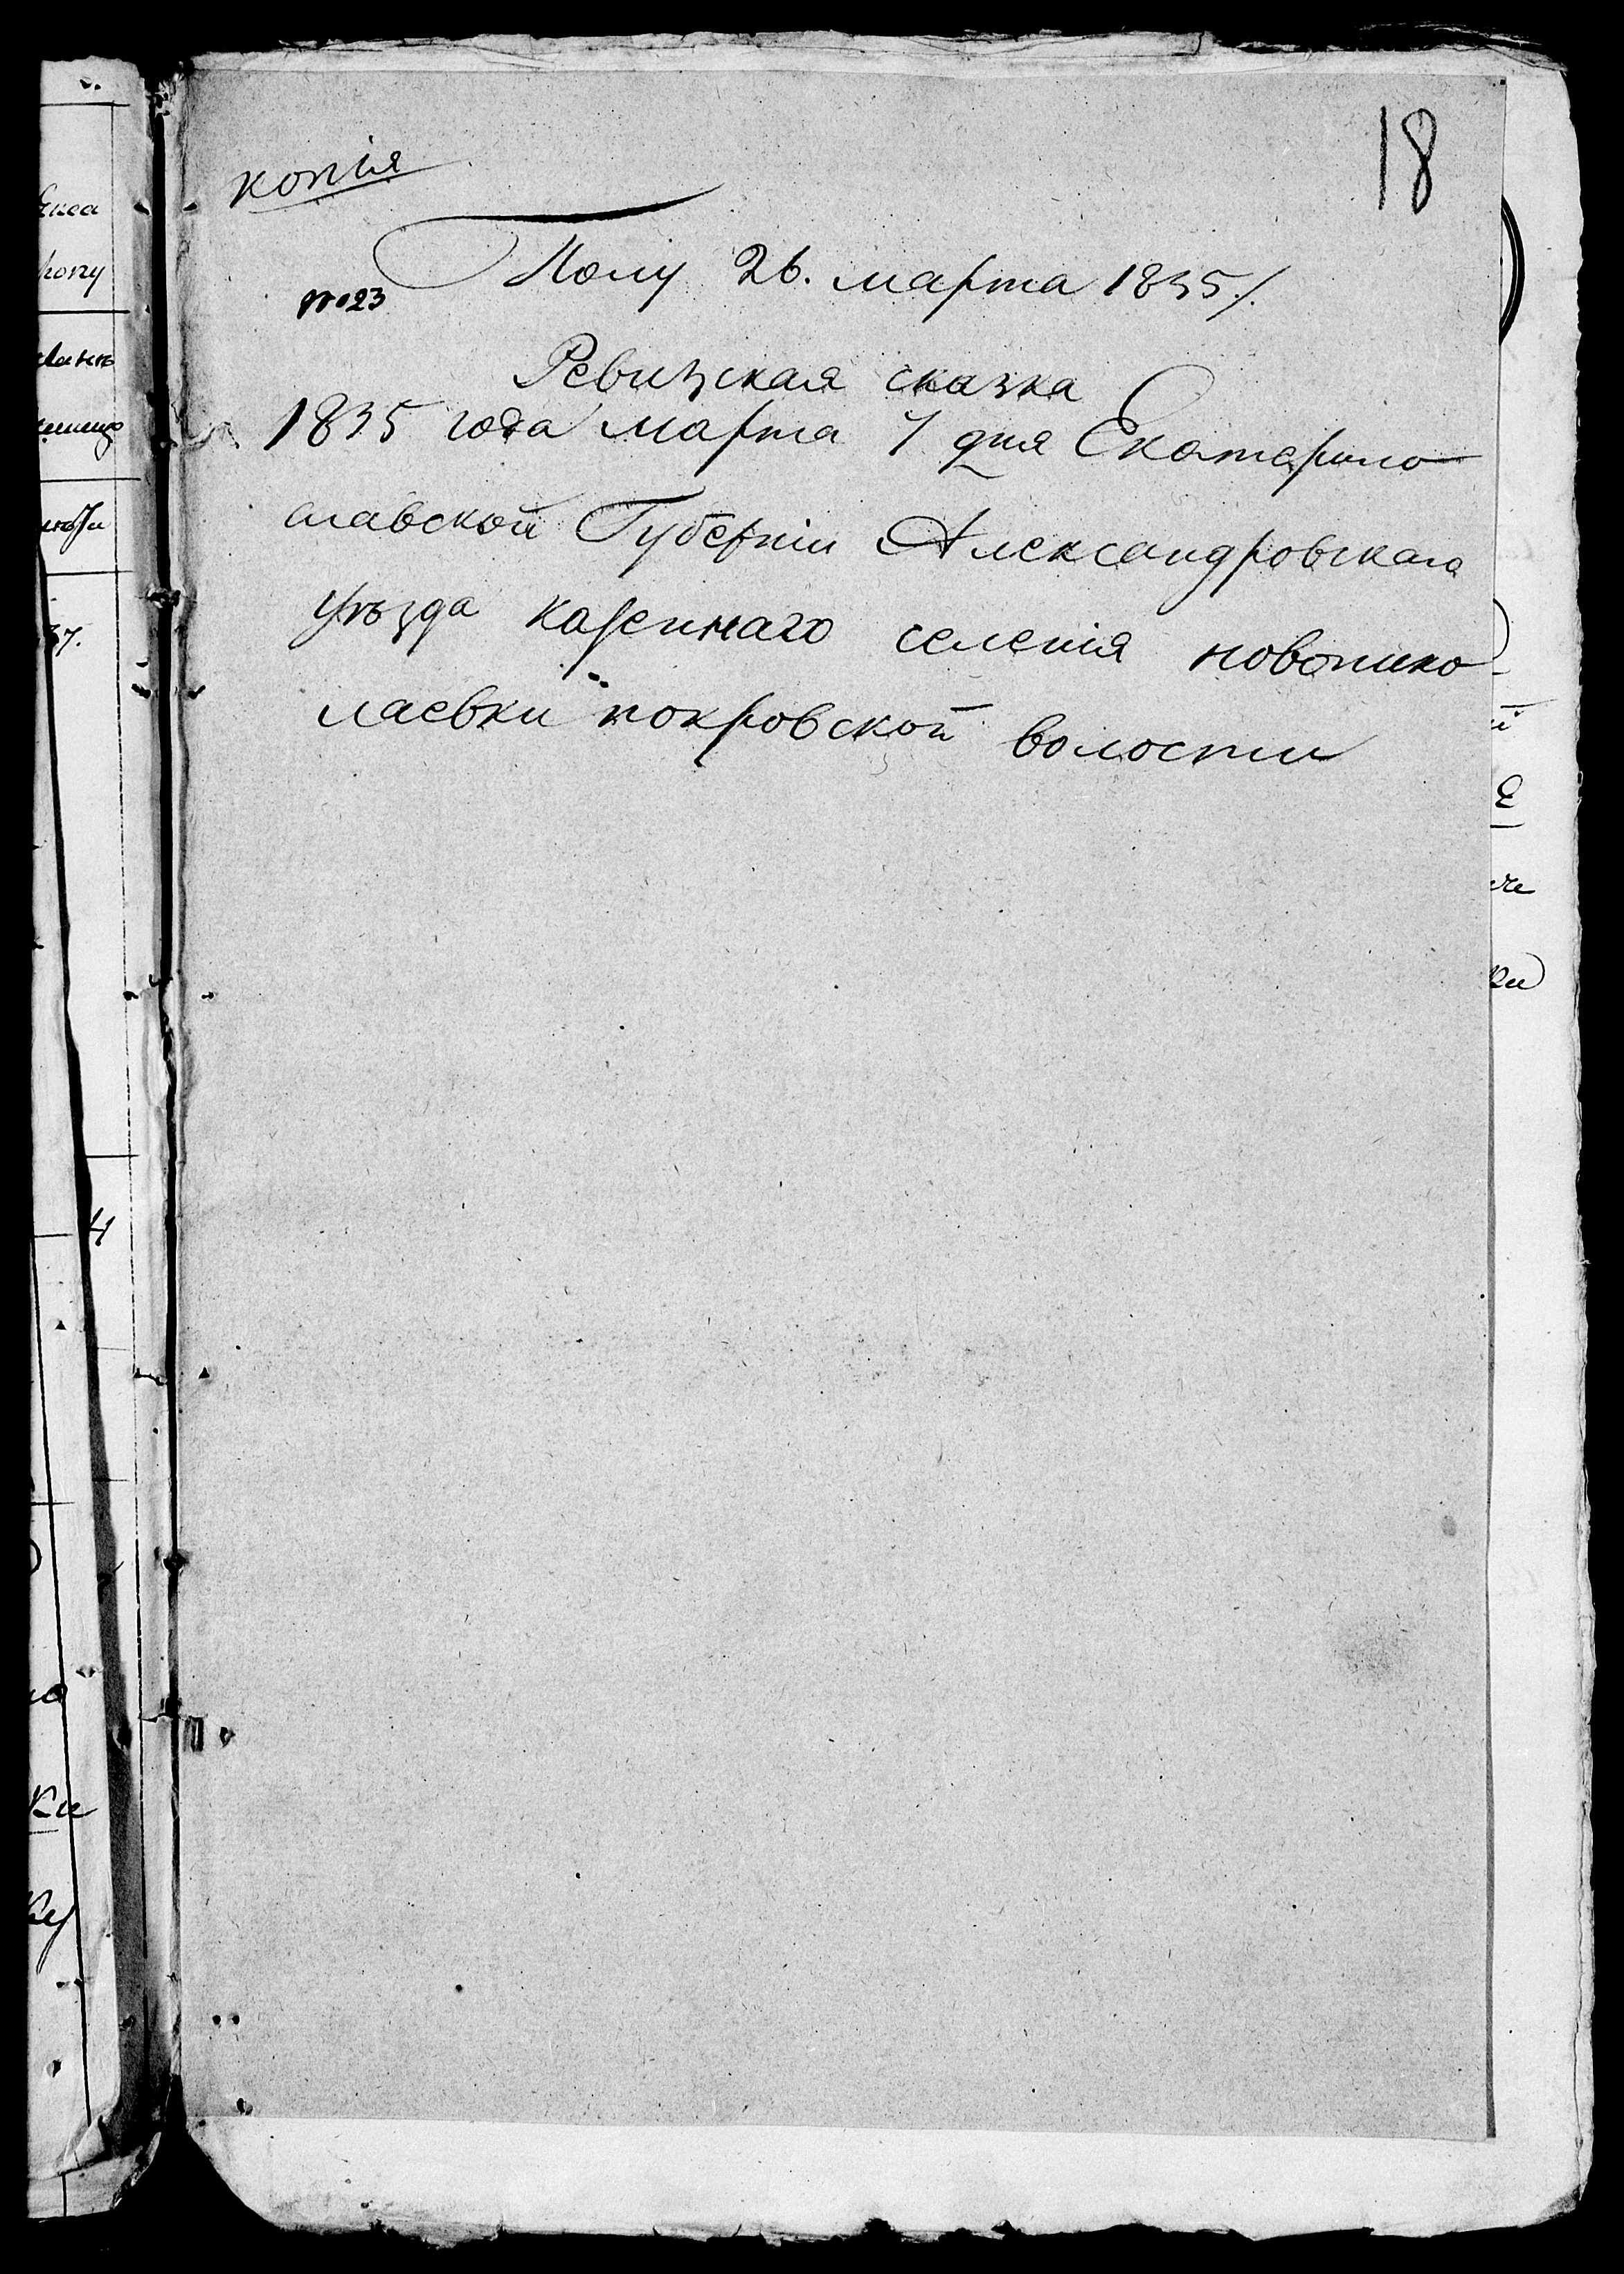 18
копія
Полу 26. марта 1835/.
№23
Ревизская сказка
1835 года марта 7 дня Екатерино
славской Губерніи Александровскаго
уѣзда казеннаго селенія новонико-
лаевки покровской волости